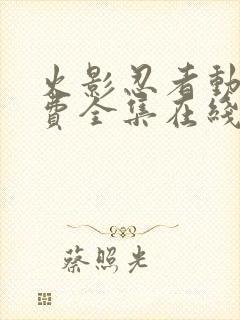 火影忍者動
費全集在綫
蔡照光